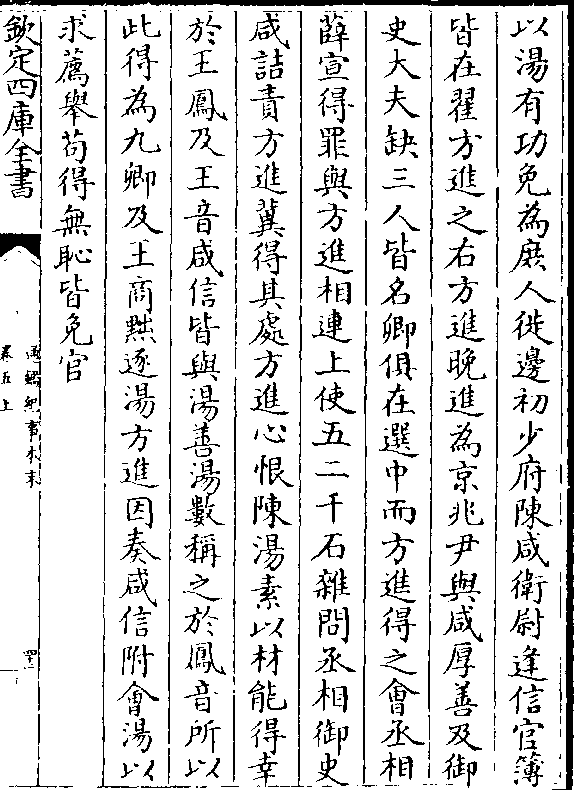 以湯有功免為庶人徙邊初少府陳咸衛尉逢信官簿
皆在翟方進之右方進晚進為京兆尹與咸厚善及御
史大夫缺三人皆名卿俱在選中而方進得之會丞相
薛宣得罪與方進相連上使五二千石雜問丞相御史
咸詰責方進冀得其處方進心恨陳湯素以材能得幸
於王鳳及王音咸信皆與湯善湯數稱之於鳳音所以
此得為九卿及王商黜逐湯方進因奏咸信附會湯以
求薦舉苟得無恥皆免官
欽定四庫全書
卷五上